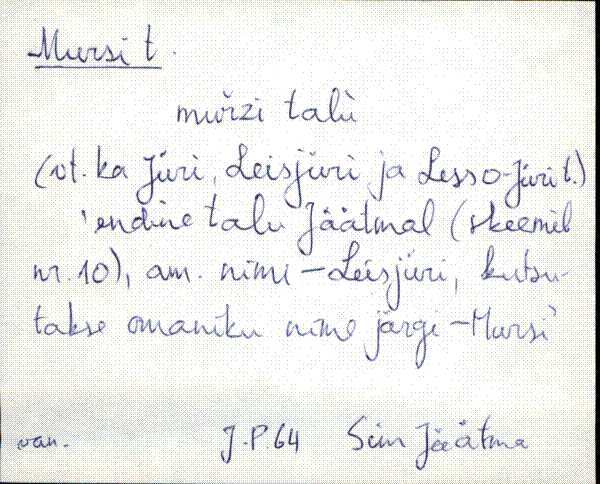 Mursi t.
muřzi talù
(vt. ka Jüri, Leisjüri ja Lesso-Jüri t.)
'endine talu Jäätmal (skeemil
nr. 10), am. nimi - Leisjüri, kutsu-
takse omaniku nime järgi - Mursi'
van. J.P.64 Sim Jäätma